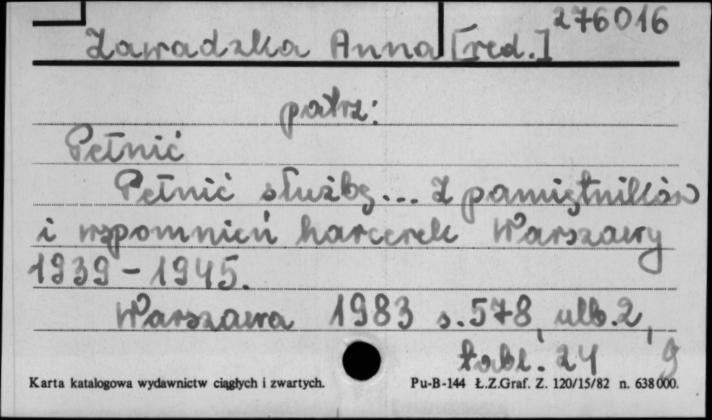 276016
Zawadzka Anna [red.]
patrz:
Pełnić
Pełnić służbę... Z pamiętników
i wspomnień harcerek Warszawy
1939-1945.
Warszawa 1983 s.578, ulb.2,
tabl. 24
Karta katalogowa wydawnictw ciągłych i zwartych. Pu-B-144 Ł.Z.Graf. Z. 120/15/82 n. 638 000.